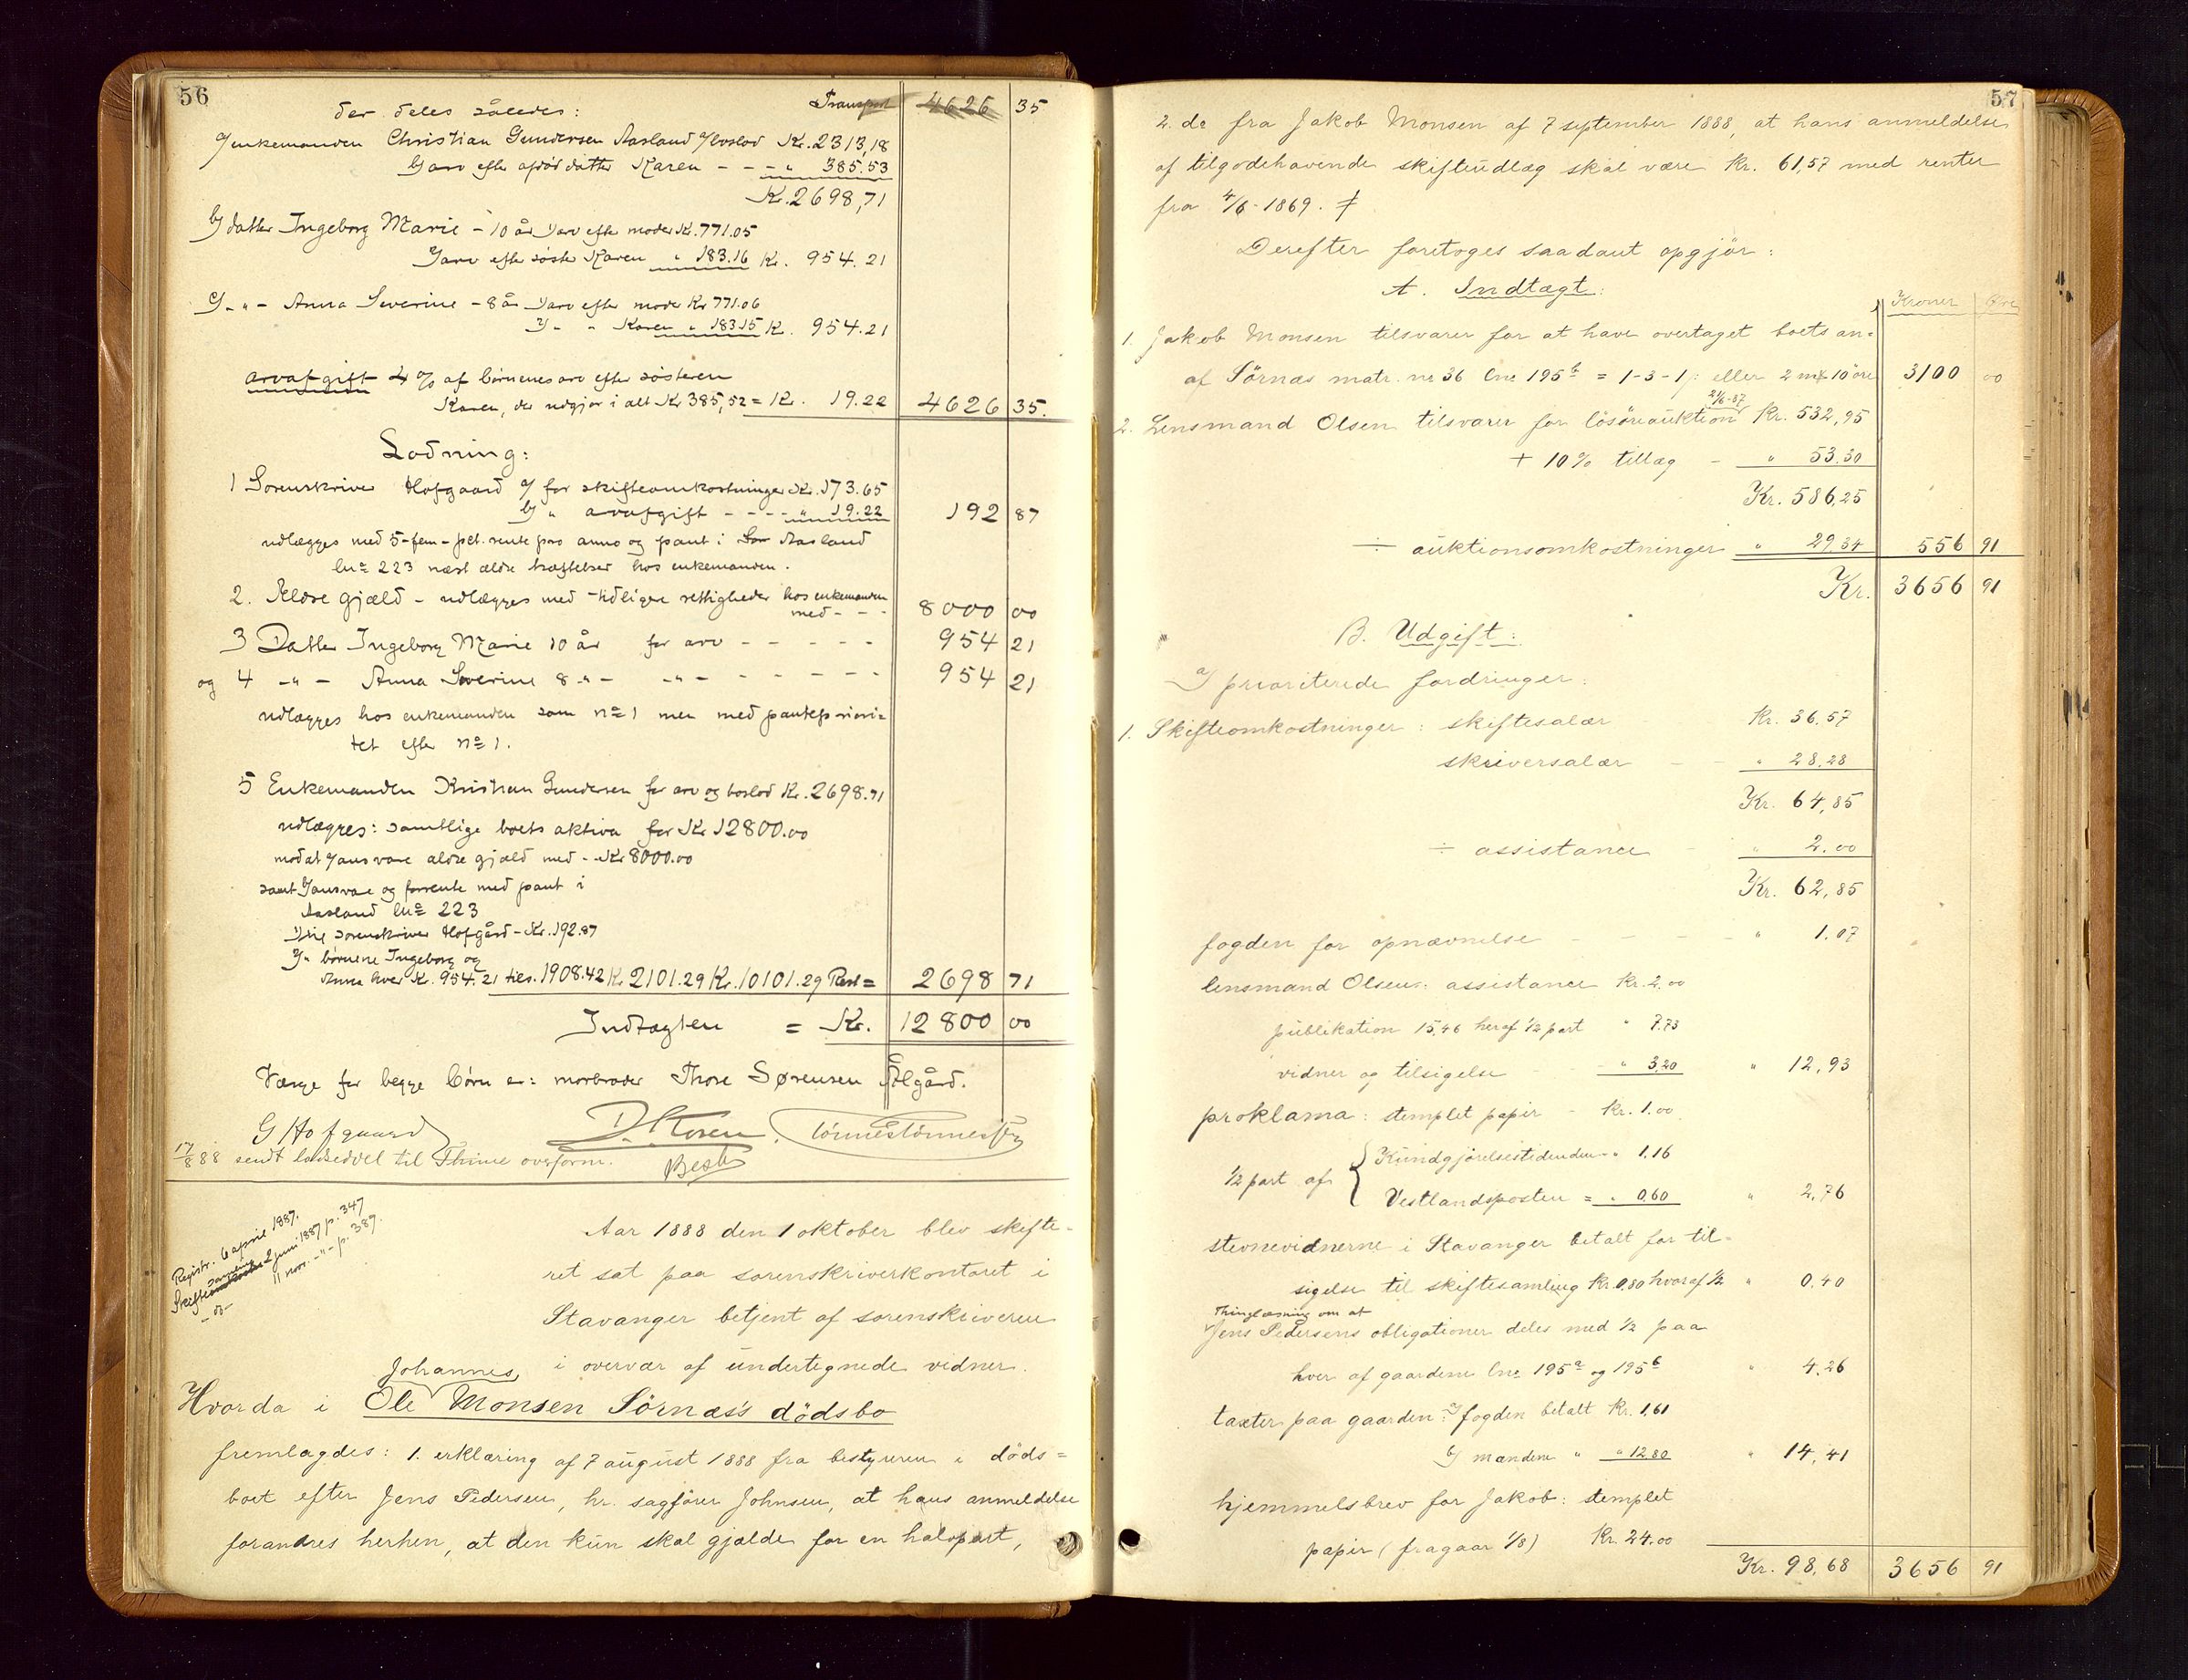 56
der deles således: Transport 4626 35
a/ enkemanden Christian Gundersen Aasland 1/ boslod Kr. 2313,18
2/ arv efter afdød datter Karen - - " 385.53
Kr. 2698,71
b/ datter Ingeborg Marie - 10 år 1/ arv efter moder Kr. 771.05
2/ arv efter søster Karen " 183.16 Kr. 954.21
c/ - " - Anna Severine - 8 år 1/ arv efter moder Kr. 771.06
2/ - " Karen " 183.15 Kr. 954.21
arvafgift 4 % af børnenes arv efter søsteren
Karen, der udgjør i alt Kr. 385,52 = Kr. 19.22 4626 35.
Lodning:
1 Sorenskriver Hofgaard a/ for skifteomkostninger Kr. 173.65
b/ " arvafgift - - - - " 19.22 192 87
udlægges med 5-fem-pct. rente pro anno og pant i Aasland
lnr 223 næst ældre hæftelser hos enkemanden.
2. Ældre gjæld - udlægges med tidligere rettigheder hos enkemanden
med - - - 8000 00
3 Datter Ingeborg Marie 10 år for arv - - - - - 954 21
og 4 - " - Anna Severine 8 - " - - " - - - - - - 954 21
udlægges hos enkemanden som no 1 men med pantepriori=
tet efter no 1.
5 Enkemanden Kristian Gundersen for arv og boslod Kr. 2698.71
udlægges: samtlige boets aktiva for Kr 12800.00
mod at 1/ ansvare ældre gjæld med - Kr 8000.00
samt 2/ ansvare og forrente med pant i
Aasland lnr 223
1/ til sorenskriver Hofgård - Kr. 192.87
2/ " børnene Ingeborg og
Anna hver Kr. 954.21 tils. 1908.42 Kr 2101.29 Kr. 10101.29 Rest = 2698 71
Indtægten = Kr. 12800 00
Værge for begge børn er: morbroder Thore Sørensen Ålgård.
G Hofgaard D. Koren. Tönnes Tönnessen
17/8 88 sendt lodseddel til Thime overform. Best
Registr. 6 april 1887.
Skiftesamling 2 juni 1887 p. 347
- do - 11 nov. - " - p. 389.
Aar 1888 den 1 oktober blev skifte-
ret sat paa sorenskriverkontoret i
Stavanger betjent af sorenskriveren
i overvær af undertegnede vidner.
Johannes
Hvorda i Ole Monsen Sörnæs's dödsbo
fremlagdes: 1. erklæring af 7 august 1888 fra bestyreren i döds=
boet efter Jens Pedersen, hr. sagfører Johnsen, at hans anmeldelse
forandres herhen, at den kun skal gjælde for en halvpart,
57
2. do fra Jakob Monsen af 7 september 1888, at hans anmeldelse
af tilgodehavende skifteudlæg skal være Kr. 61,57 med renter
fra 4/6-1869.
Derefter foretoges saadant opgjør:
A. Indtægt:
Kroner Øre
1. Jakob Monsen tilsvarer for at have overtaget boets an=
af Sörnæs matr. nr 36 lnr 195b = 1-3-1/: eller 2 mk 10 øre 3100 00
21/6-87
2. Lensmand Olsen tilsvarer for lösöreauktion Kr. 532,95
+ 10% tillæg - " 53.30
Kr. 586,25
÷ auktionsomkostninger " 29,34 556 91
Kr. 3656 91
B. Udgift:
a/ prioriterede fordringer:
1. Skifteomkostninger: skiftesalær Kr. 36.57
skriversalær - - " 28,28
Kr. 64,85
÷ assistance - " 2.00
Kr. 62,85
fogden for opnævnelse - - - - " 1.07
lensmand Olsen: assistance Kr. 2.00
publikation 15,46 heraf 1/2 part " 7.73
vidner og tilsigelse - - " 3,20 " 12,93
proklama: stemplet papir - Kr. 1.00
1/2 part af { Kundgjørelsestidenden - " 1,16
Vestlandsposten = " 0,60 " 2,76
stevnevidnerne i Stavanger betalt for til-
sigelse til skiftesamling Kr. 0,80 hvoraf 1/2 " 0.40
Thinglæsning om at
Jens Pedersens obligationer deles med 1/2 paa
hver af gaardene lnr 195a og 195b " 4.26
taxter paa gaarden: a/ fogden betalt Kr. 1,61
b/ mændene " " 12.80 " 14,41
hjemmelsbrev for Jakob: stemplet
papir (fragaar 1/8) Kr. 24.00
Kr. 98,68 3656 91